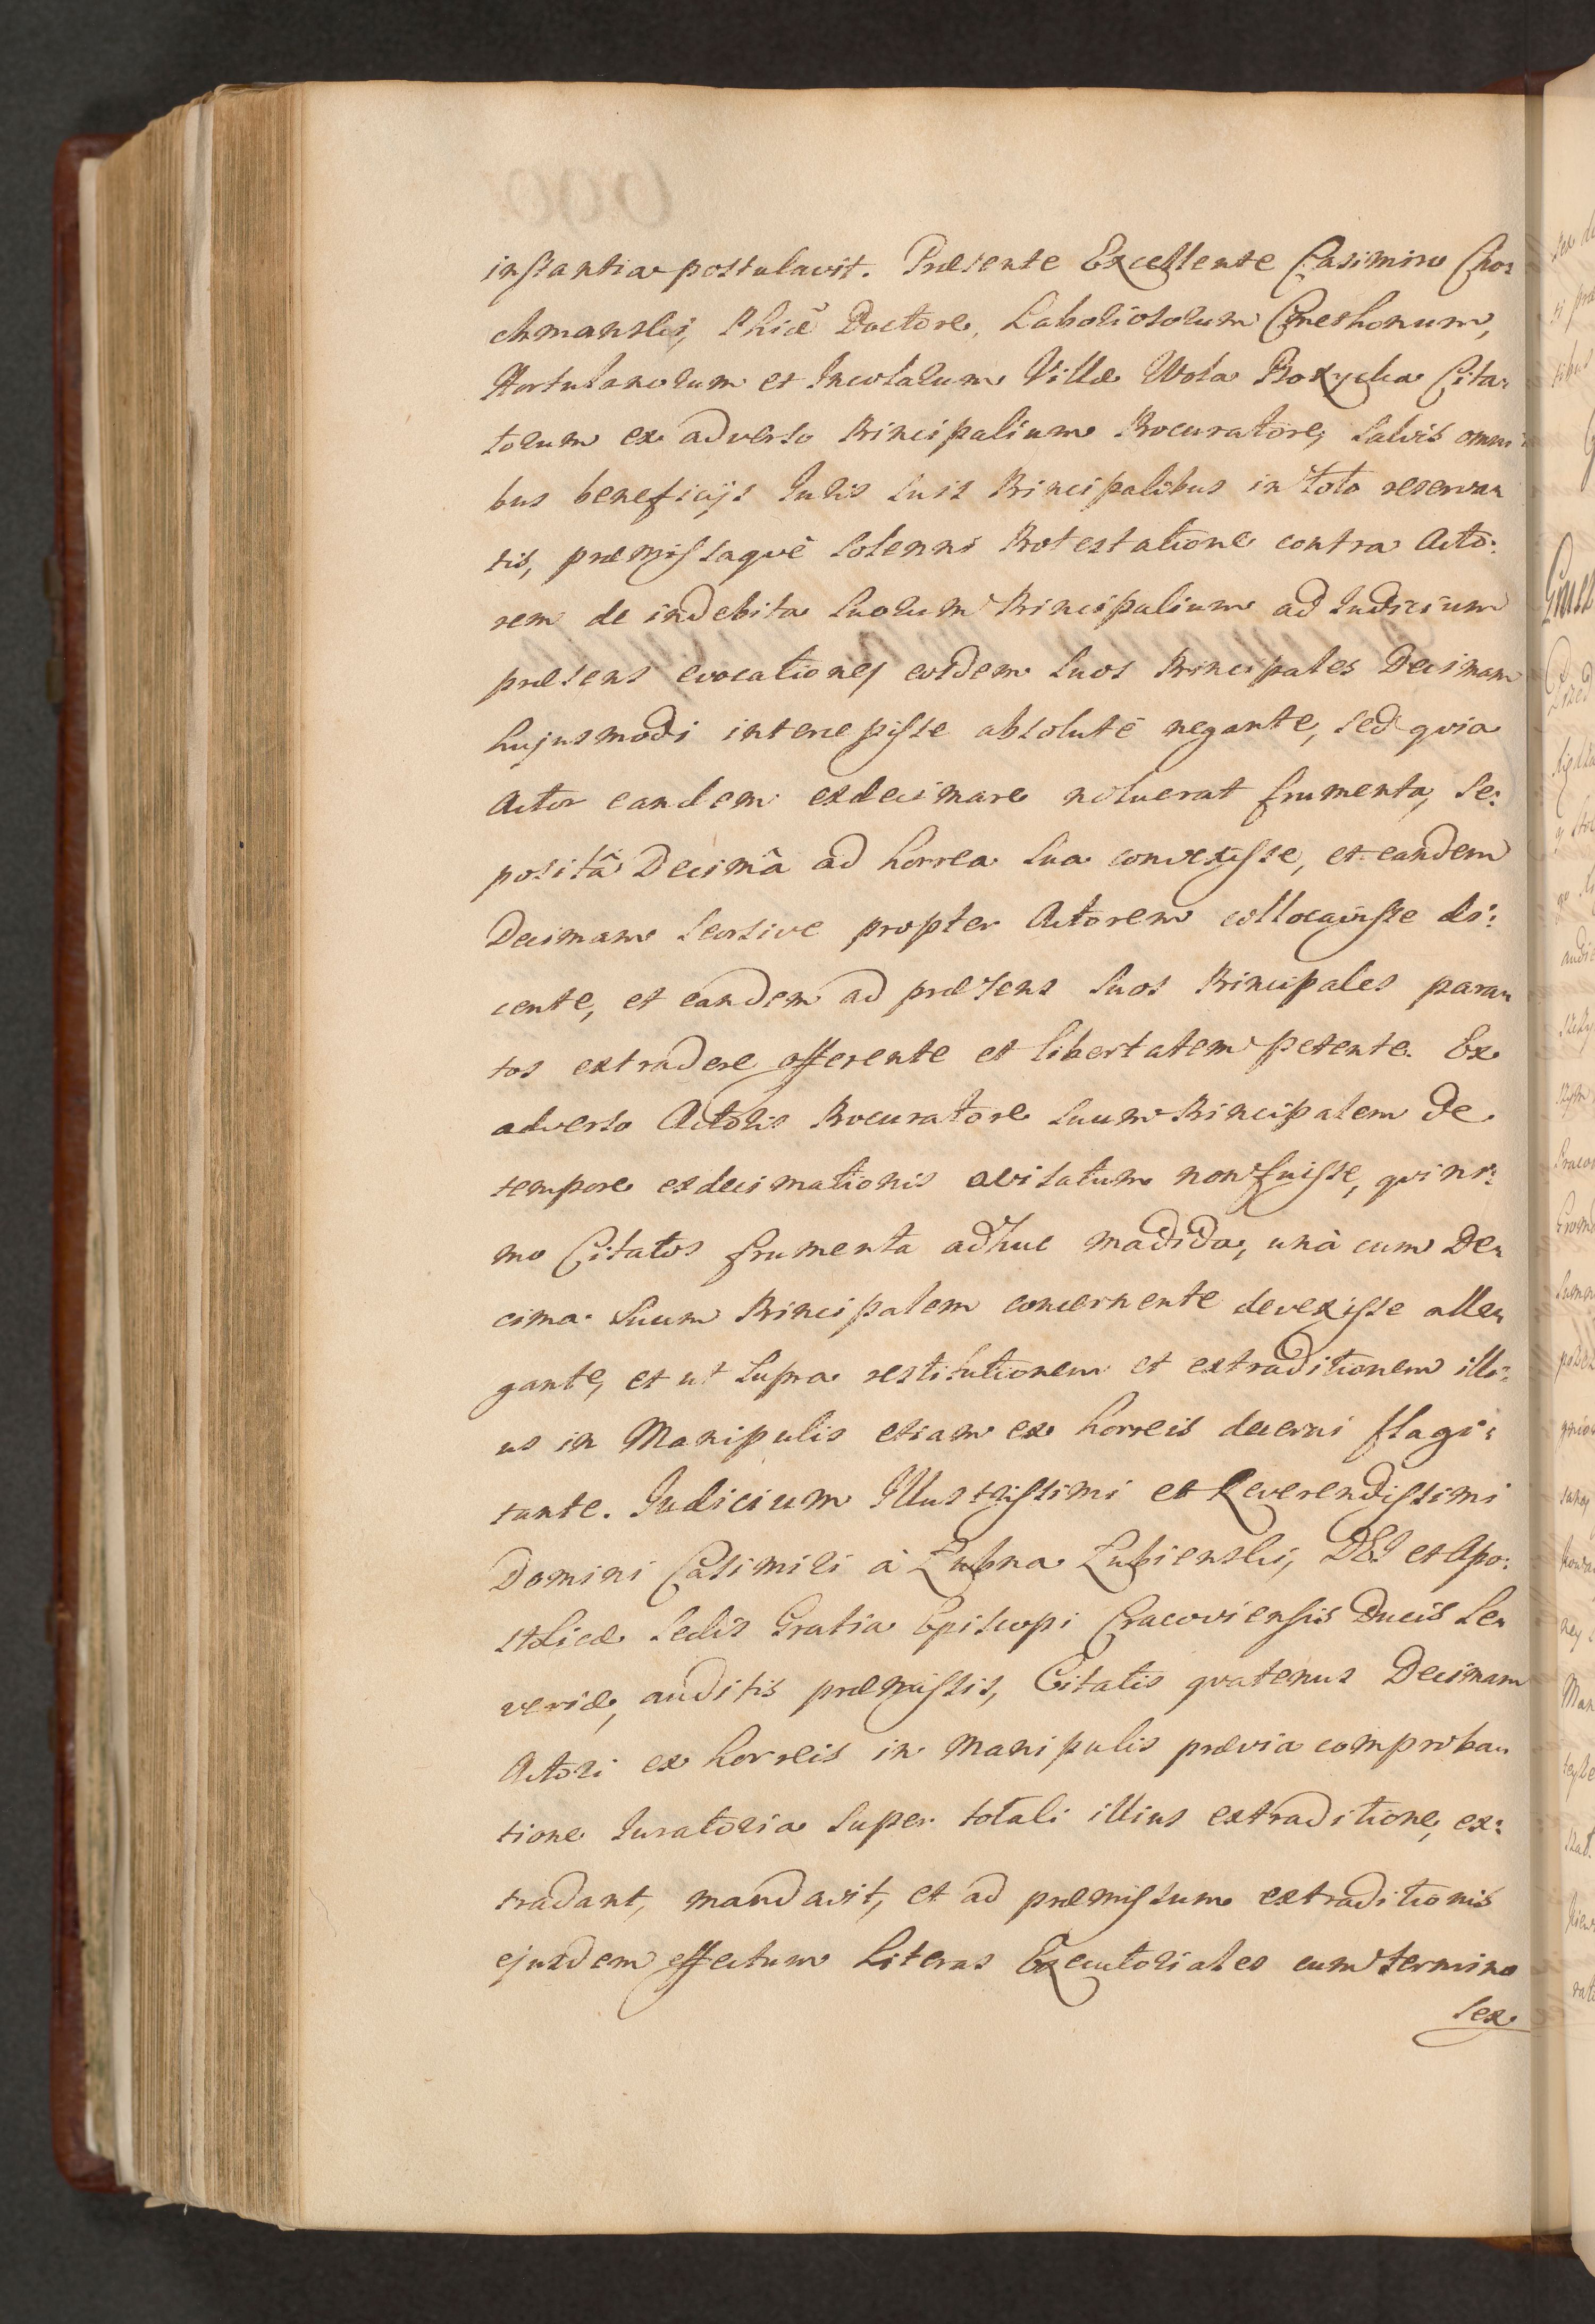 instantia postulavit. Præsente Excellente Casimiro Cho:
chmanski, Phiæ Doctore, Laboriosorum Cmethonum,
Hortulanorum et Incolarum Villæ Wola Cita:
torum ex adverso Principalium Procuratore, salvis omni
bus beneficijs Iuris suis Principalibus in toto reserva:
tis, præmissaquè solenni Protestatione contra Acto:
rem de indebita suorum Principalium ad Iudicium
præsens evocatione, eosdem suos Principales Decimam
hujusmodi intercepisse absolutè negante, sed quia
Actor eandem exdecimare noluerat frumenta, se:
positâ Decimâ ad horrea sua convexisse, et eandem
Decimam seorsive propter Actorem collocavisse di:
cente, et eandem ad præsens suos Principales para:
tos extradere offerente et libertatem petente. Ex
adverso Actoris Procuratore suum Principalem de
tempore exdecimationis avisatum non fuisse, quini:
mo Citatos frumenta adhuc madida, unà cum De:
cima suum Principalem concernente devexisse alle:
gante, et ut supra restitutionem et extraditionem illi:
us in Manipulis etiam ex horreis decerni flagi:
tante. Judicium Illustrissimi et Reverendissimi
Domini Casimiri à Łubna Łubienski, DEI et Apo:
stolicæ Sedis Gratia Episcopi Cracoviensis Ducis Se:
veriæ, auditis præmissis, Citatis quatenus Decimam
Actori ex horreis in Manipulis prævia comproba:
tione Iuratoria super totali illius extraditione, ex:
tradant, mandavit, et ad præmissum extraditionis
ejusdem effectum Literas Executoriales cum termino
sex